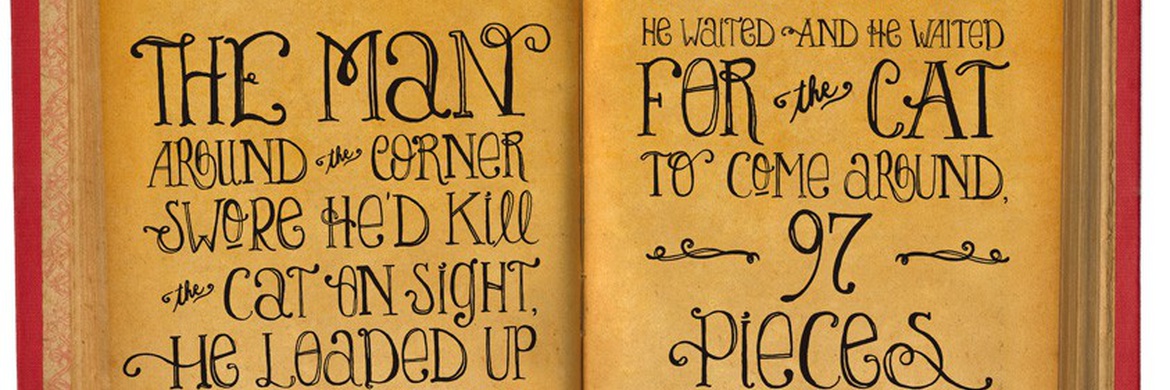 THE MaN
AROUND the CORNeR
SWORE He'D Kill
the CaT ON SigHT,
He LOaDeD UP
He WaITeD AND He WAITeD
FOR the CAT
TO COMe aROUND,
97
PieceS